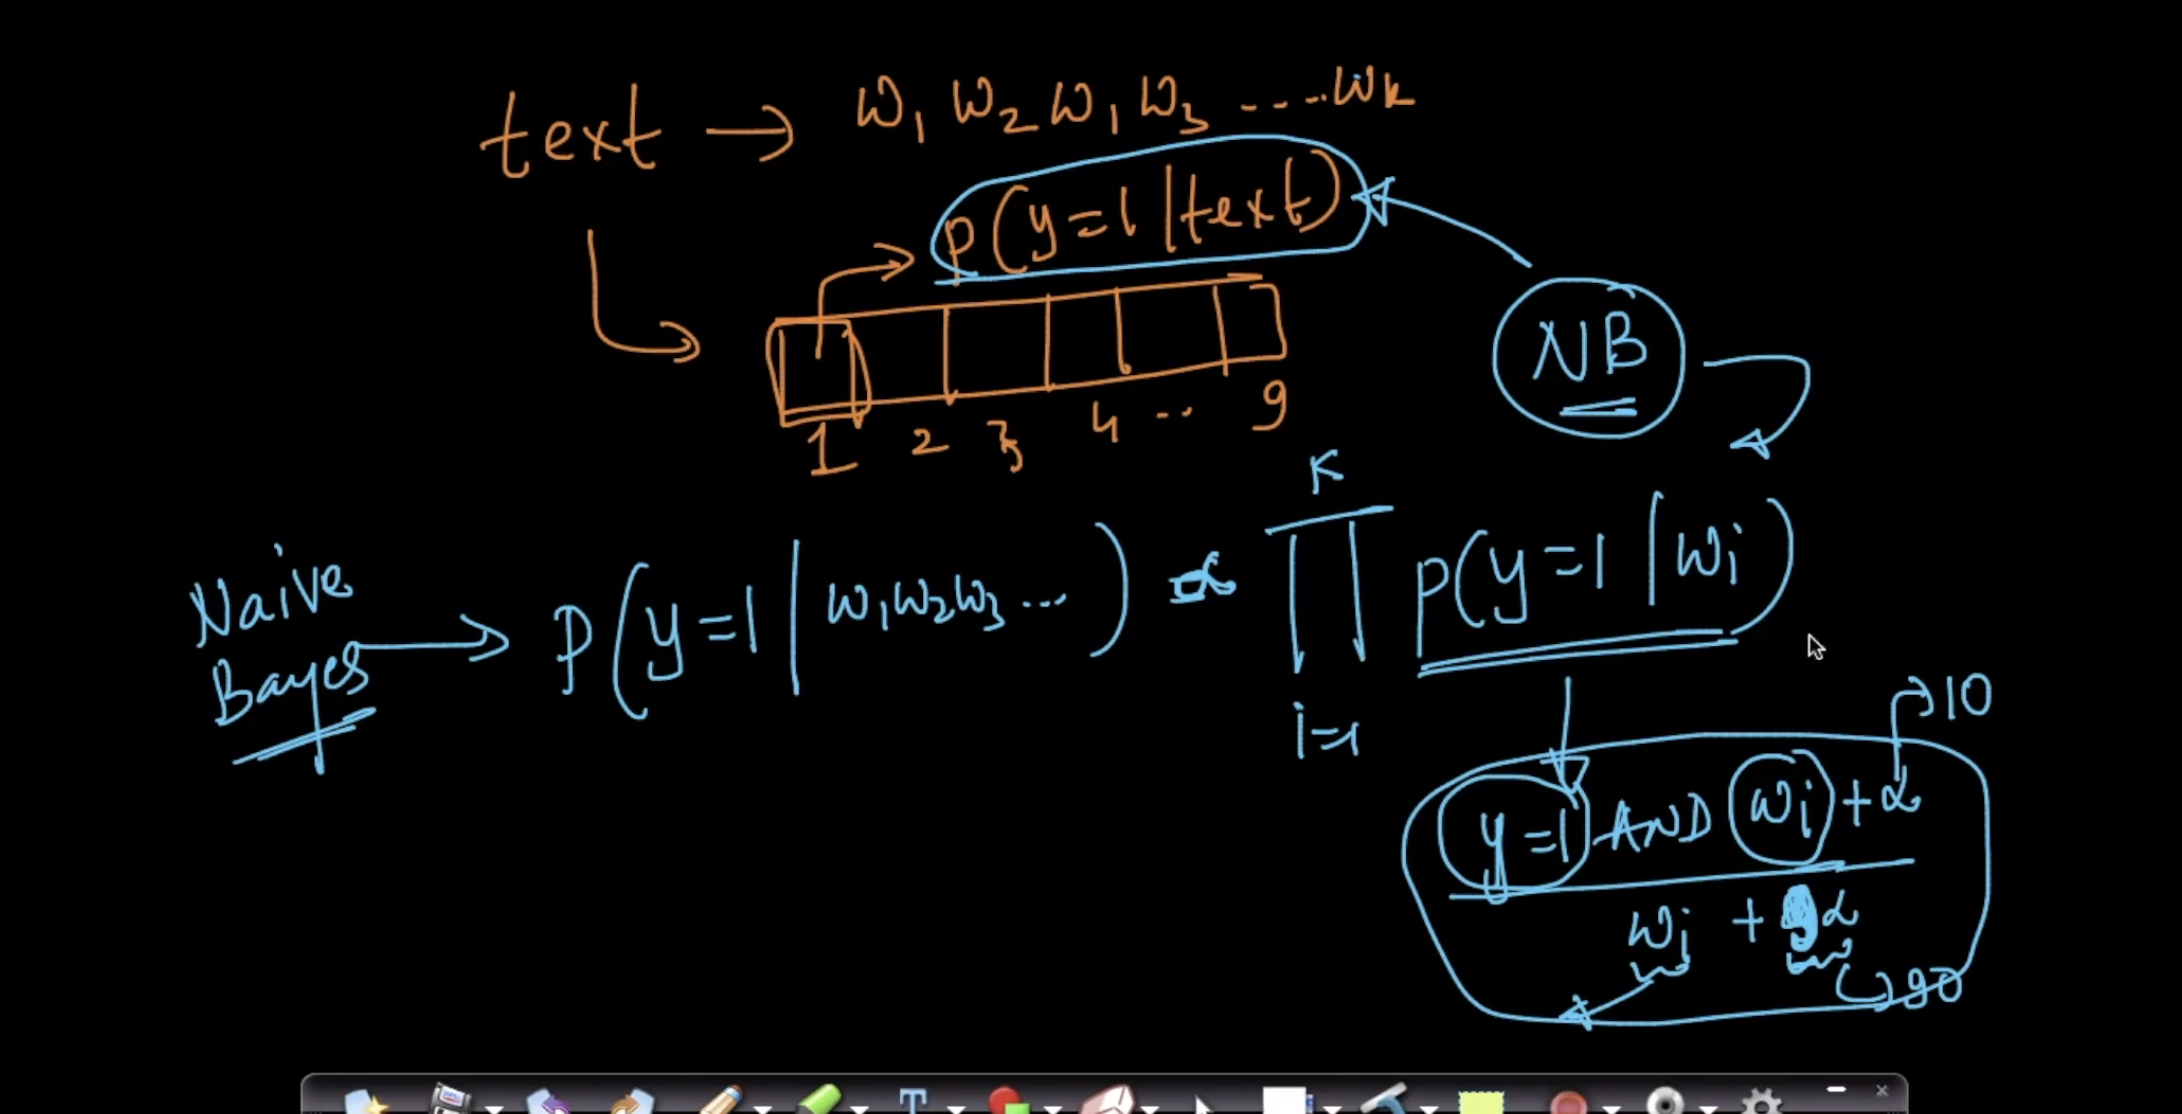 text → w₁ w₂ w₁ w₃ ----.wₖ
P(y=1|text)
NB
1 2 3 4 .. 9
Naive
Bayes → P(y=1|w₁w₂w₃...) ∝ ∏ᵢ₌₁ᴷ P(y=1|wᵢ)
→10
y=1 AND wᵢ + α
wᵢ + 9α
→90
T